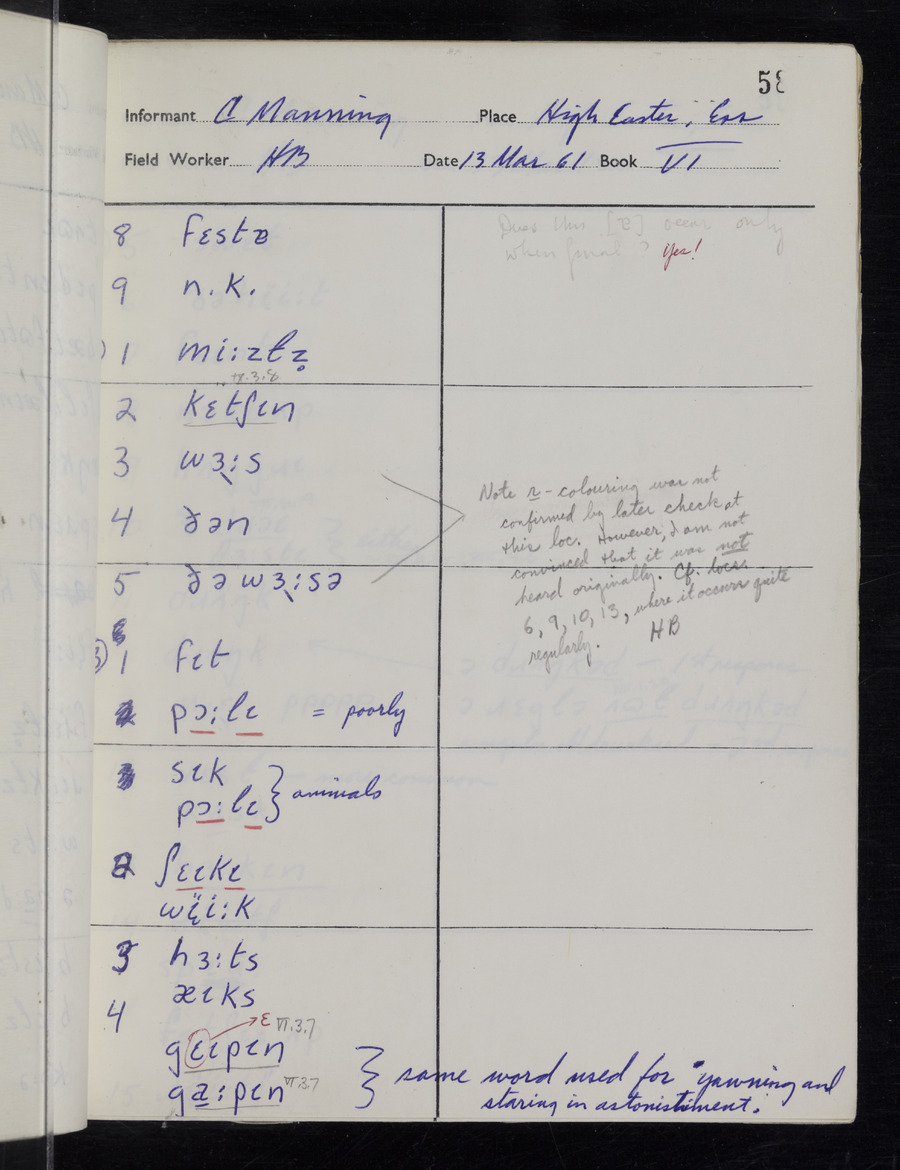 58
Informant C Manning Place High Easter, Ess
Field Worker HB Date 13 Mar 61 Book VI
8 fɛstɐ
Does this [ɐ] occur only
when final? Yes!
9 n.k.
1 mi:ztz̥
VI.3.8
2 kɛtʃɪn
3 wɜ˞:s
4 ðən
5 ðə wɜ˞:sə
Note r-colouring was not
confirmed by later check at
this loc. However, I am not
convinced that it was not
heard originally. Cf. locs.
6, 9, 10, 13, where it occurs quite
regularly. HB
3) 1 fɪt
2 pɔ:lɪ = poorly
3 sɪk
pɔ:lɪ } animals
2 ʃɛɪkɪ
wï̞i:k
3 hɜ:ts
æɪks
4
ɛ VI.3.7
gɛɪpɪn
ga:pɪn VI.3.7 } same word used for "yawning and
staring in astonishment.